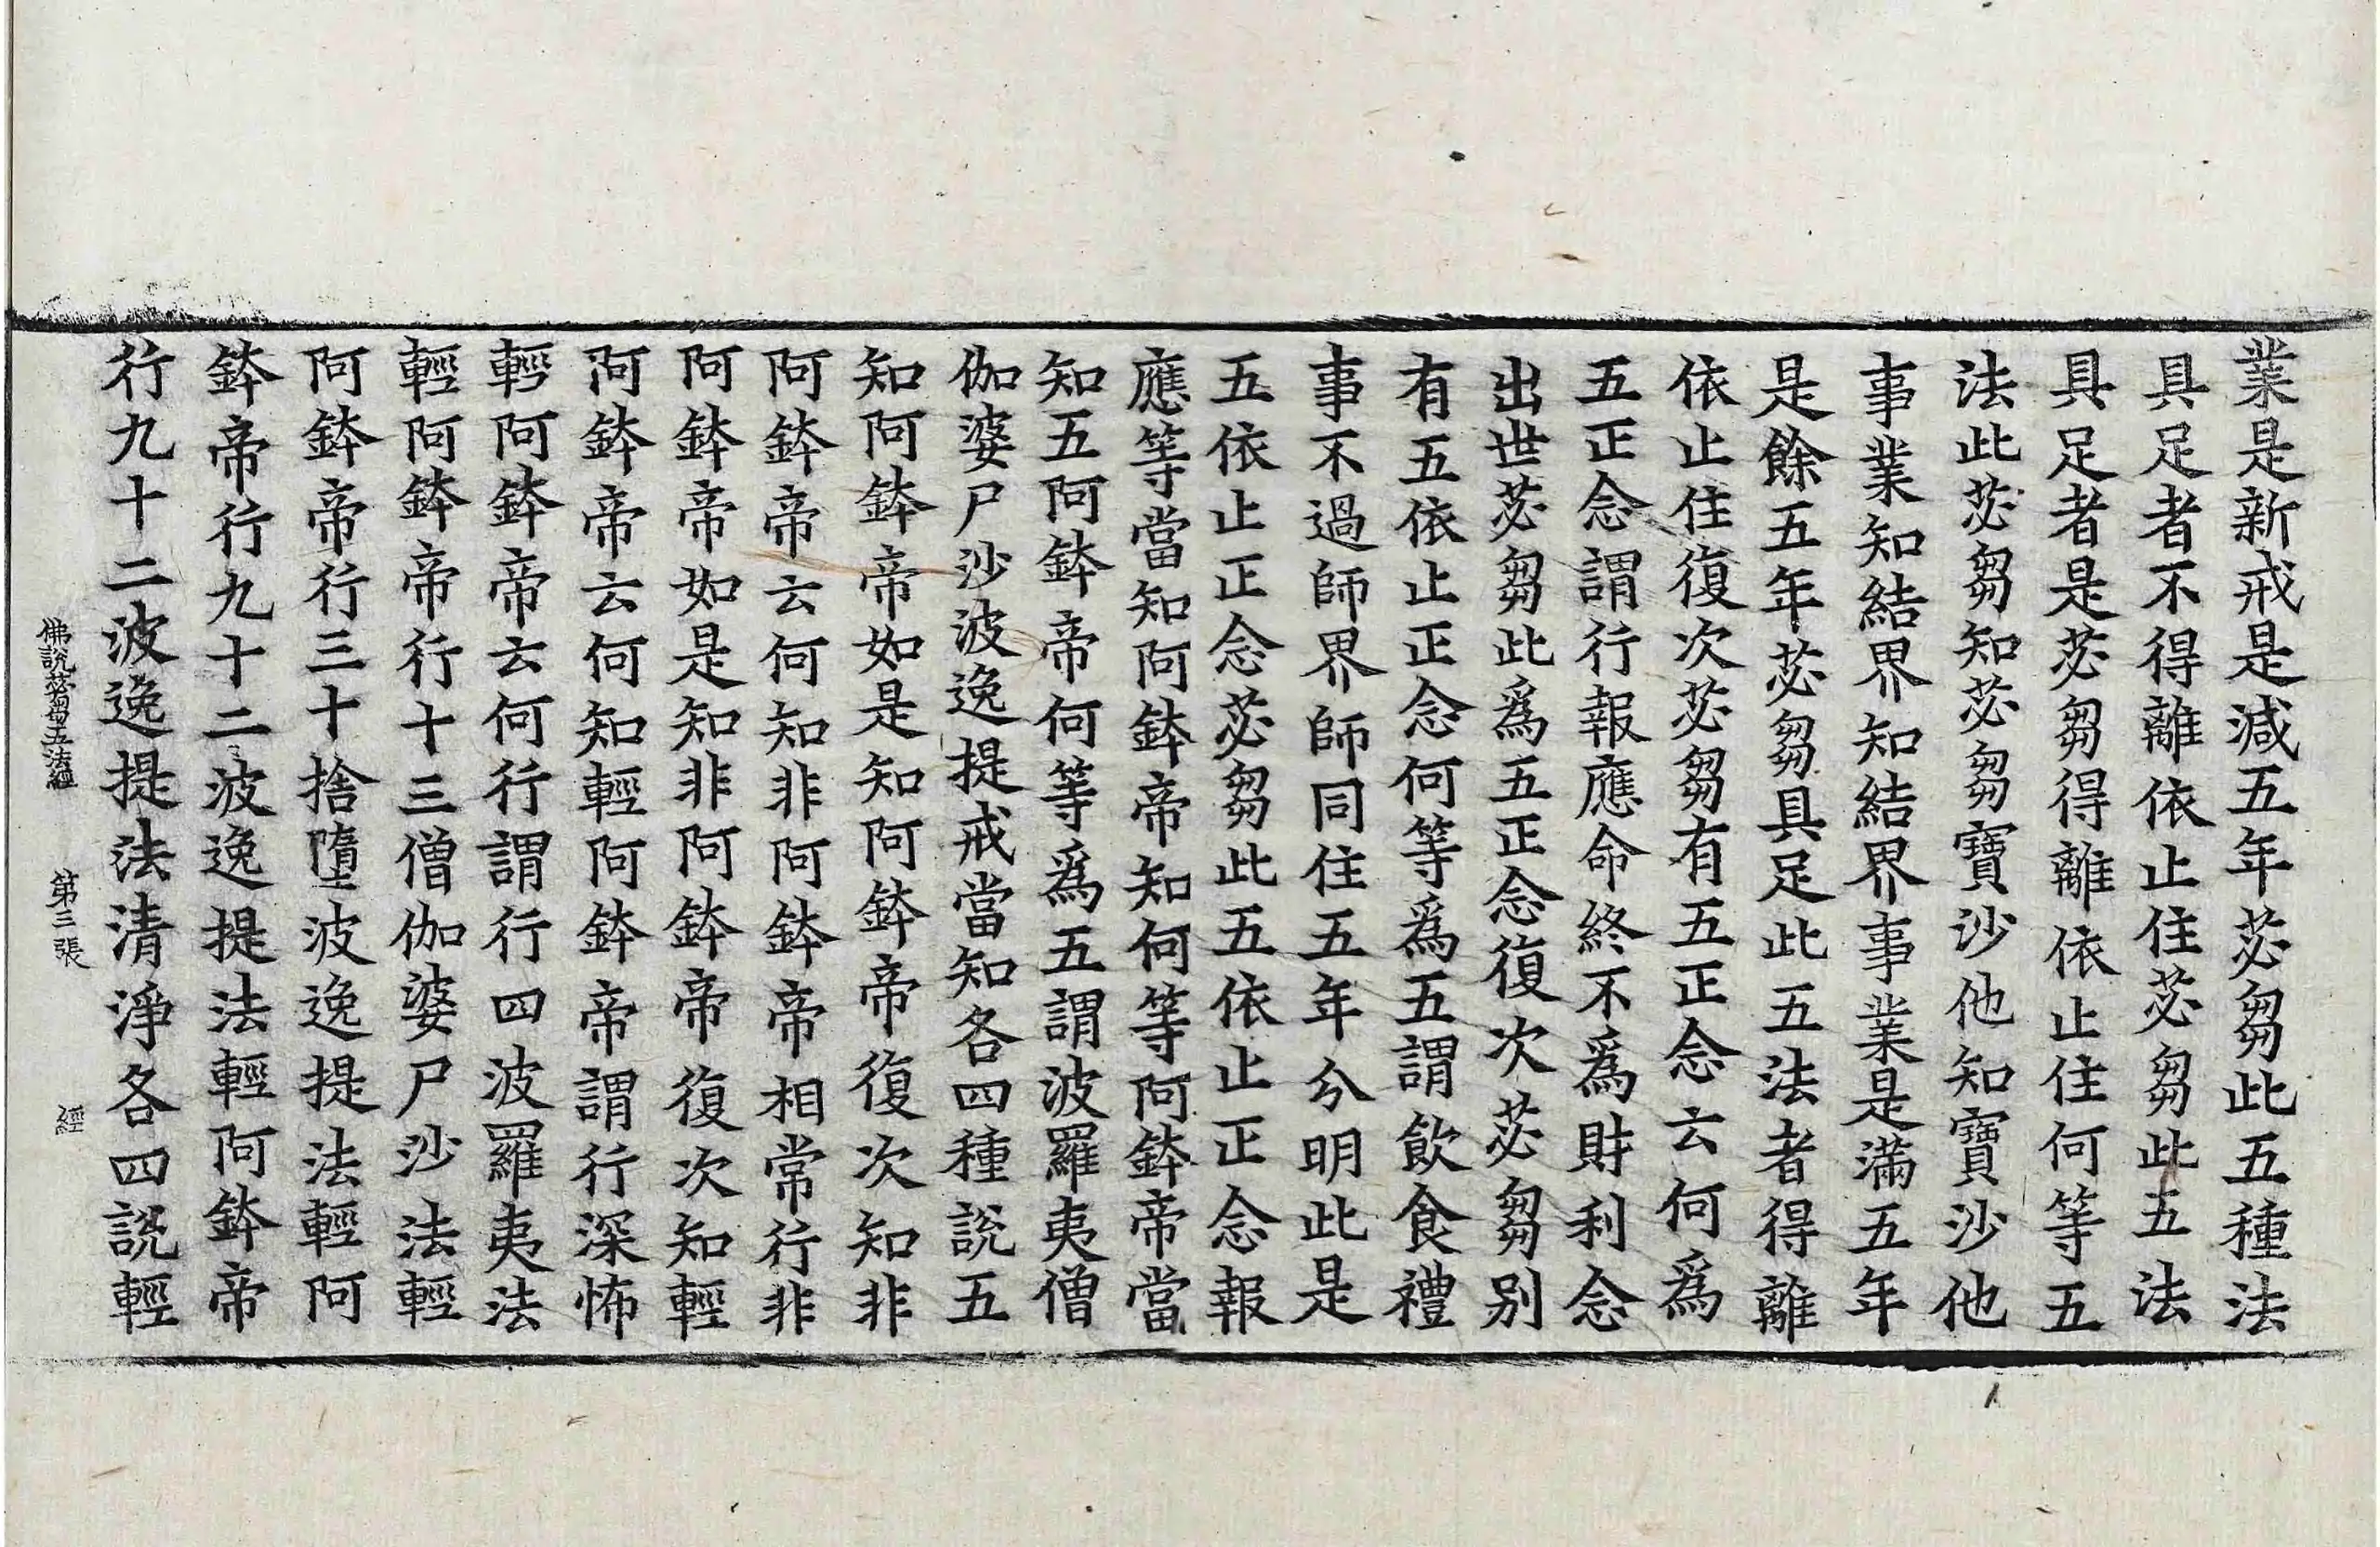 業是新戒是減五年苾芻此五種法
具足者不得離依止住苾芻此五法
具足者是苾芻得離依止住何等五
法此苾芻知苾芻寶沙他知寶沙他
事業知結界知結界事業是滿五年
是餘五年苾芻具足此五法者得離
依止住復次苾芻有五正念云何爲
五正念謂行報應命終不爲財利念
出世苾芻此爲五正念復次苾芻別
有五依止正念何等爲五謂飲食禮
事不過師界師同住五年分明此是
五依止正念苾芻此五依止正念報
應等當知阿鉢帝知何等阿鉢帝當
知五阿鉢帝何等爲五謂波羅夷僧
伽婆尸沙波逸提戒當知各四種說五
知阿鉢帝如是知阿鉢帝復次知非
阿鉢帝云何知非阿鉢帝相常行非
阿鉢帝如是知非阿鉢帝復次知輕
阿鉢帝云何知輕阿鉢帝謂行深怖
輕阿鉢帝云何行謂行四波羅夷法
輕阿鉢帝行十三僧伽婆尸沙法輕
阿鉢帝行三十捨墮波逸提法輕阿
鉢帝行九十二波逸提法輕阿鉢帝
行九十二波逸提法清淨各四說輕
佛說苾芻五法經　第三張　經